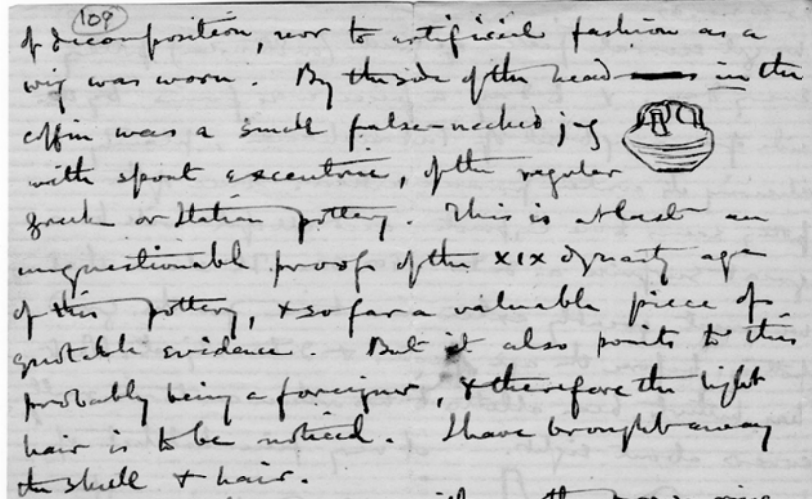 109
of decomposition, nor to artificial fashion as a
wig was worn. By the side of the head in the
coffin was a small false-necked jug
with spout excentric, of the regular
Greek or Italian pottery. This is at last an
unquestionable proof of the XIX dynasty age
of this pottery, & so far a valuable piece of
quotable evidence. But it also points to this
probably being a foreigner, & therefore the light
hair is to be noticed. I have brought away
the skull & hair.